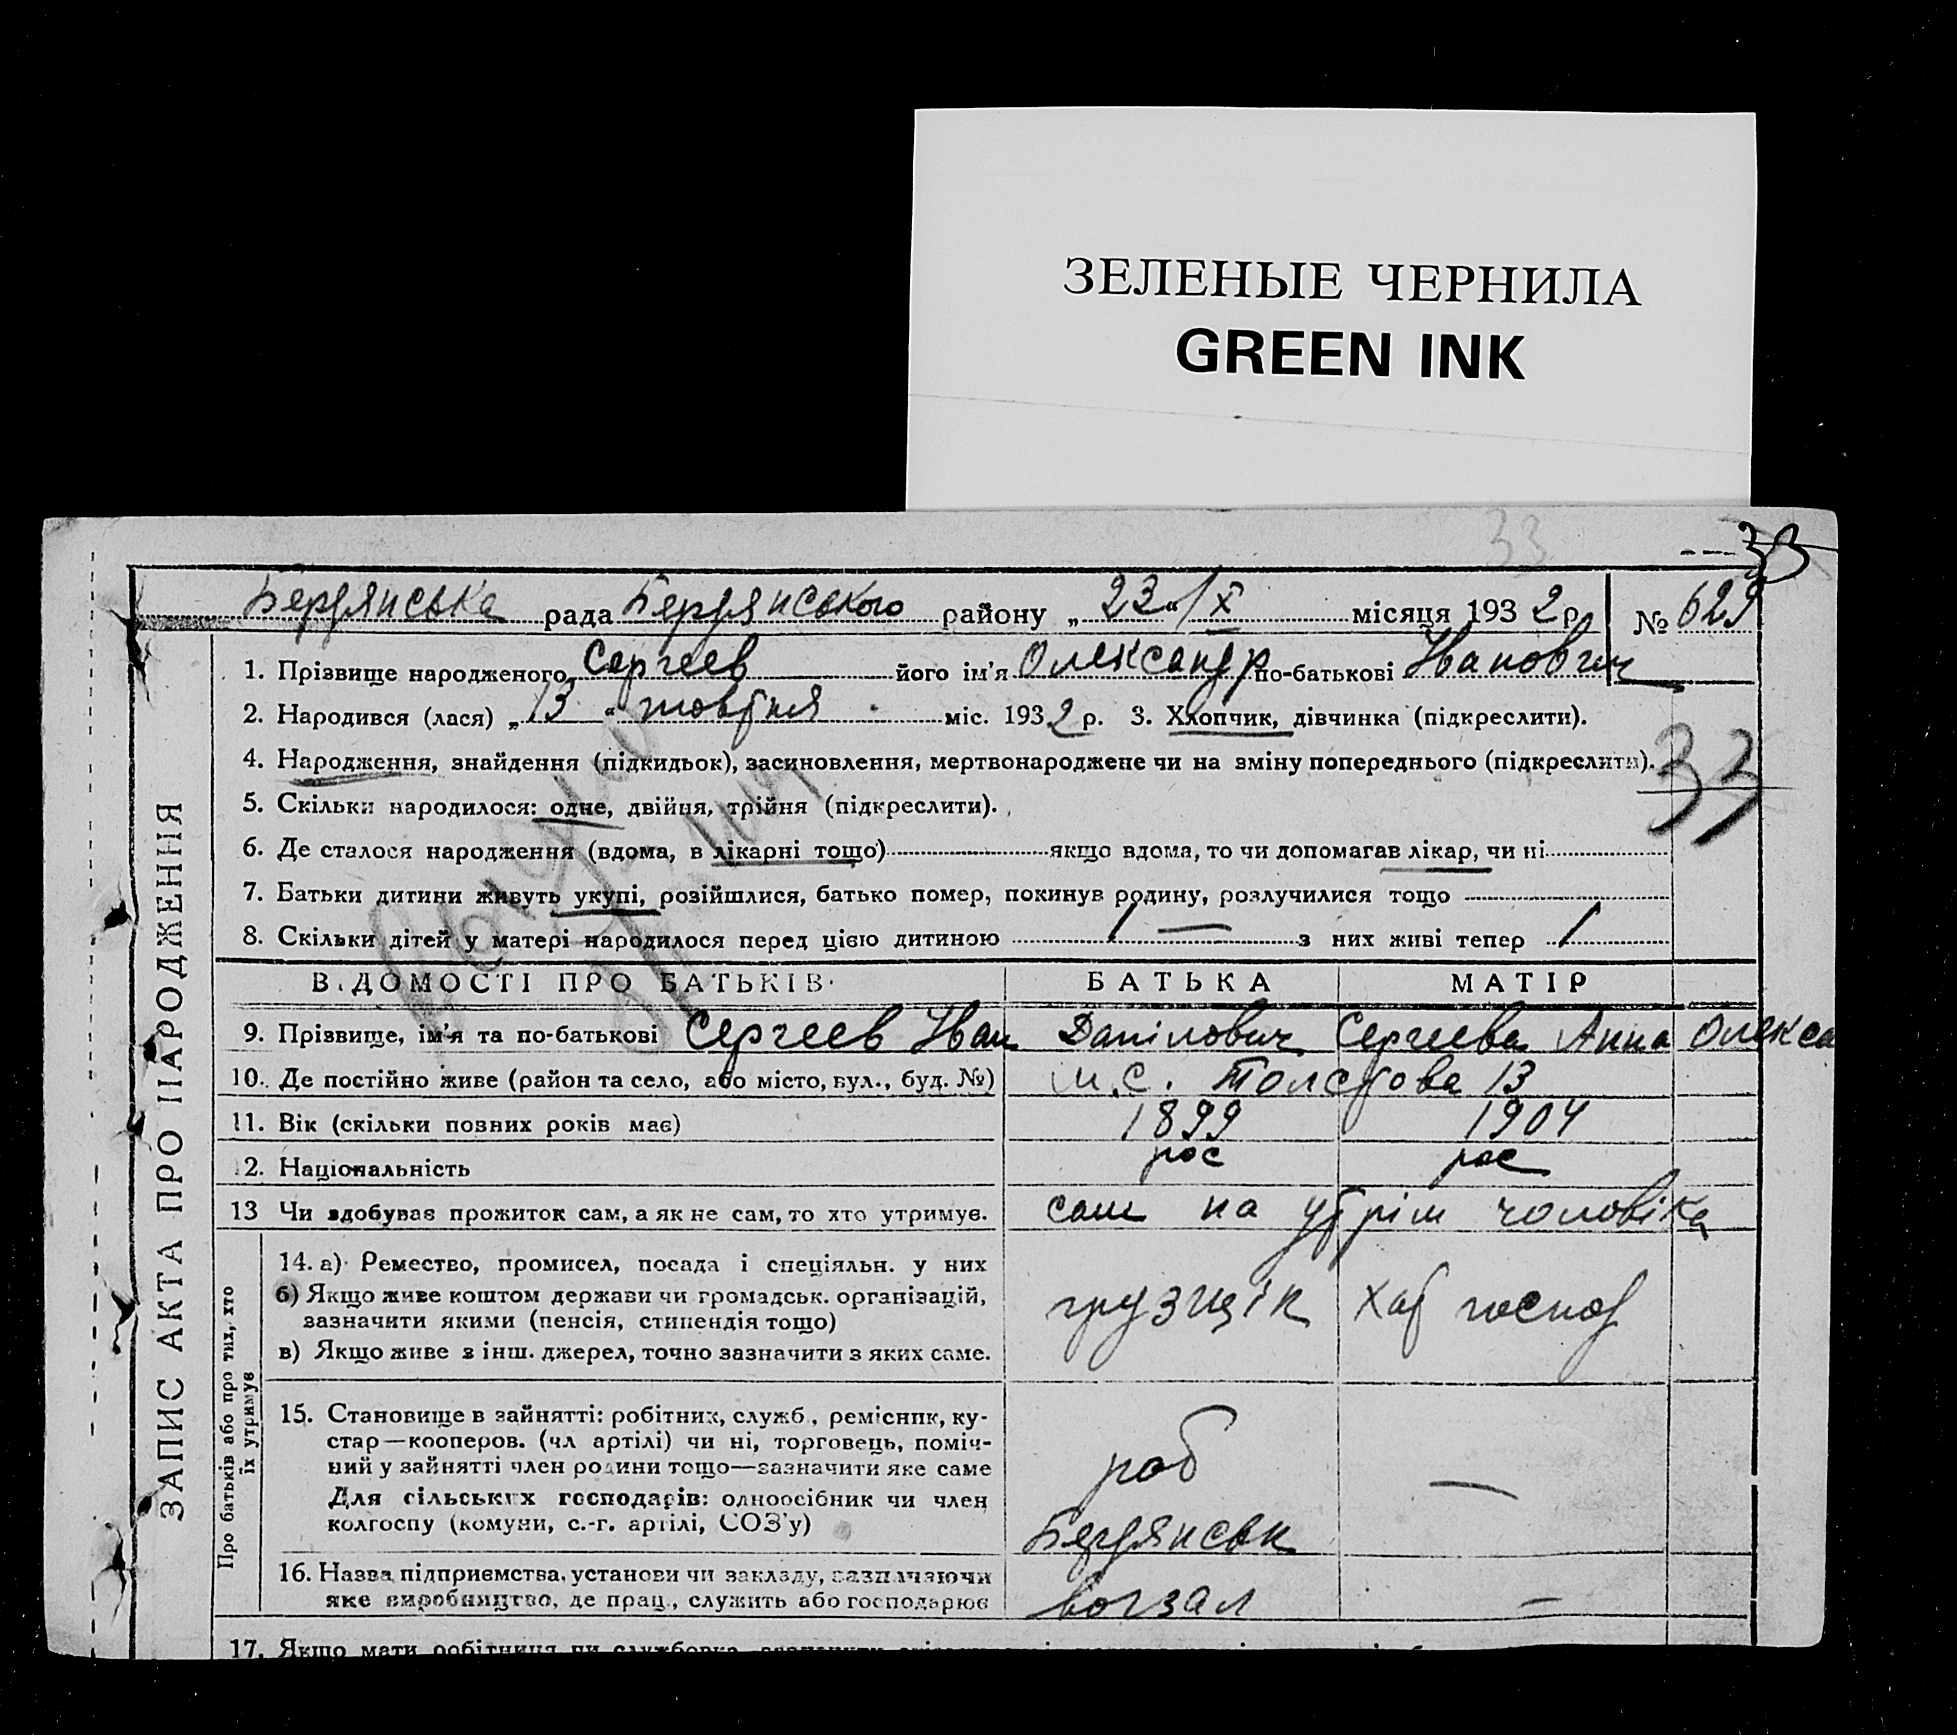 ЗЕЛЕНЫЕ ЧЕРНИЛА
GREEN INK
33
33
Бердянська рада Бердянського району „23“/X місяця 1932 р. № 629
1. Прізвище народженого Сергеев його ім'я Олександр по-батькові Іванович
2. Народився (лася) „13“ жовтня міс. 1932 р. 3. Хлопчик, дівчинка (підкреслити).
4. Народження, знайдення (підкидьок), засиновлення, мертвонароджене чи на зміну попереднього (підкреслити).
33
5. Скільки народилося: одне, двійня, трійня (підкреслити).
6. Де сталося народження (вдома, в лікарні тощо) якщо вдома, то чи допомагав лікар, чи ні
7. Батьки дитини живуть укупі, розійшлися, батько помер, покинув родину, розлучилися тощо
8. Скільки дітей у матері народилося перед цією дитиною 1 — з них живі тепер 1
ВІДОМОСТІ ПРО БАТЬКІВ БАТЬКА МАТІР
9. Прізвище, ім'я та по-батькові Сергеев Иван Данілович Сергеева Анна Олекса
10. Де постійно живе (район та село, або місто, вул., буд. №) м.с. Толстова 13
11. Вік (скільки повних років має) 1899 1904
12. Національність рос рос
13 Чи здобуває прожиток сам, а як не сам, то хто утримує. сам на утрім чоловіка
14. а) Ремество, промисел, посада і спеціяльн. у них
б) Якщо живе коштом держави чи громадськ. організацій,
зазначити якими (пенсія, стипендія тощо) грузщік хат господ
в) Якщо живе з інш. джерел, точно зазначити з яких саме.
15. Становище в зайнятті: робітник, служб., ремісник, ку-
стар—кооперов. (чл артілі) чи ні, торговець, поміч-
ний у зайнятті член родини тощо—зазначити яке саме роб —
Для сільських господарів: одноосібник чи член
колгоспу (комуни, с.-г. артілі, СОЗ'у) Бердянськ
16. Назва підприємства, установи чи закладу, зазначаючи
яке виробництво, де прац., служить або господарює вогзал —
17. Якщо мати робітниця чи службовка
ЗАПИС АКТА ПРО НАРОДЖЕННЯ
Про батьків або про тих, хто
їх утримує